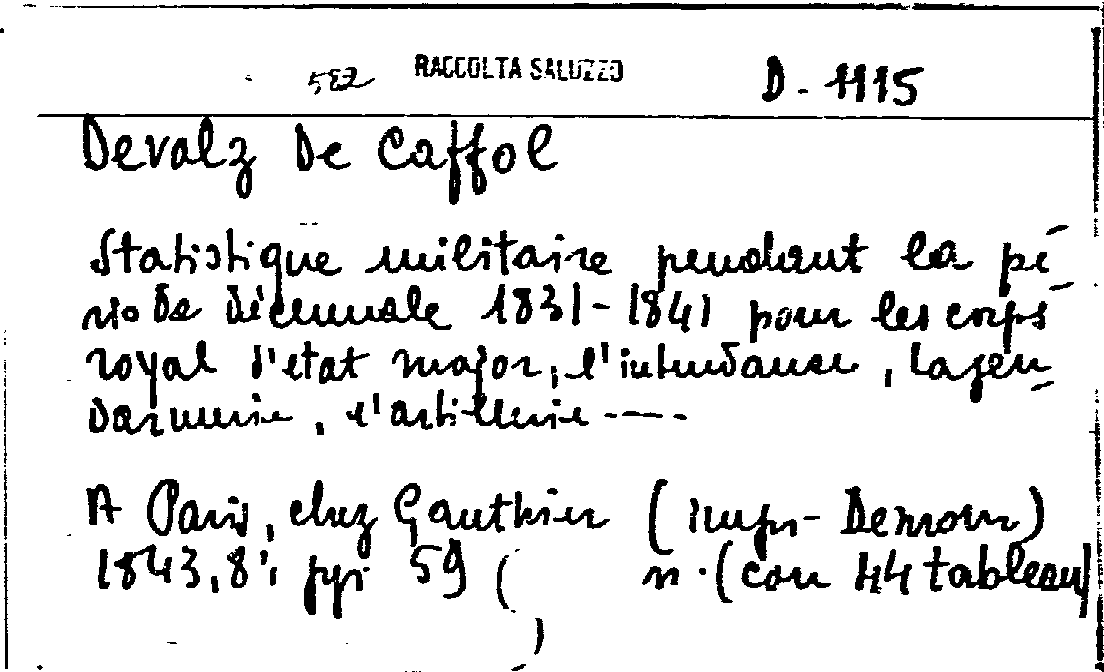 582 RACCOLTA SALUZZO D. 1115
Devalz De Caffol
Statistique militaire pendant la pé-
riode décennale 1831-1841 pour les corps
royal d'état major, l'intendance, la gen-
darmerie, l'artillerie ----
A Paris, chez Gauthier (
1843, 8°, pp. 59 ( n. (con 44 tableau)
)